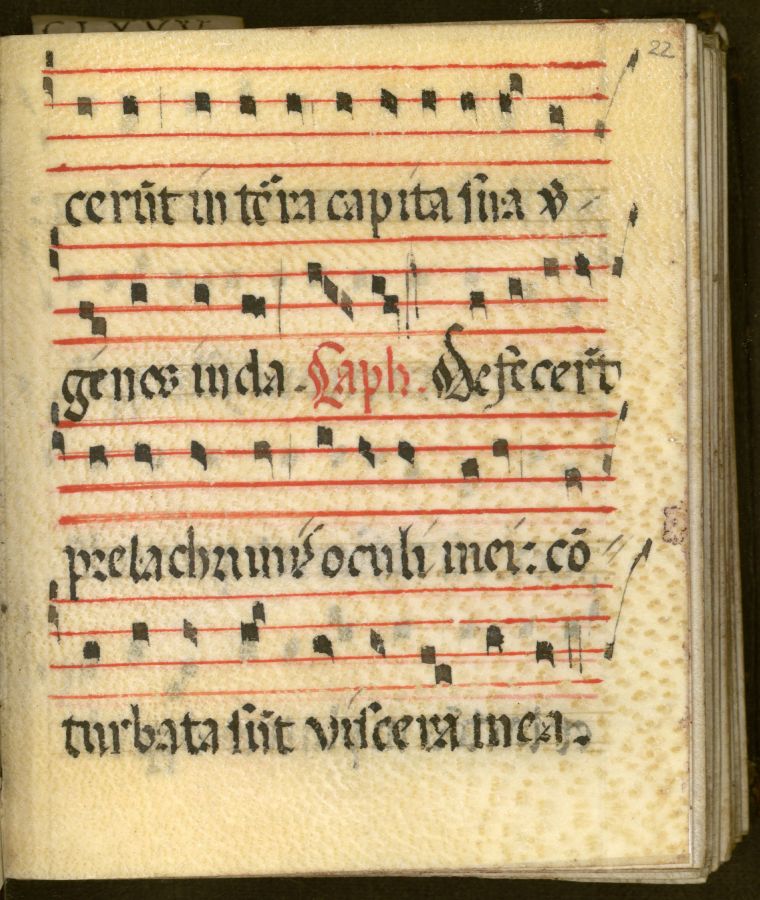 22
cerūt in tēra capita sua v̄
genes iuda . Caph . Defecerūt
pre lachrimis oculi mei : cō
turbata sūt viscera mea .